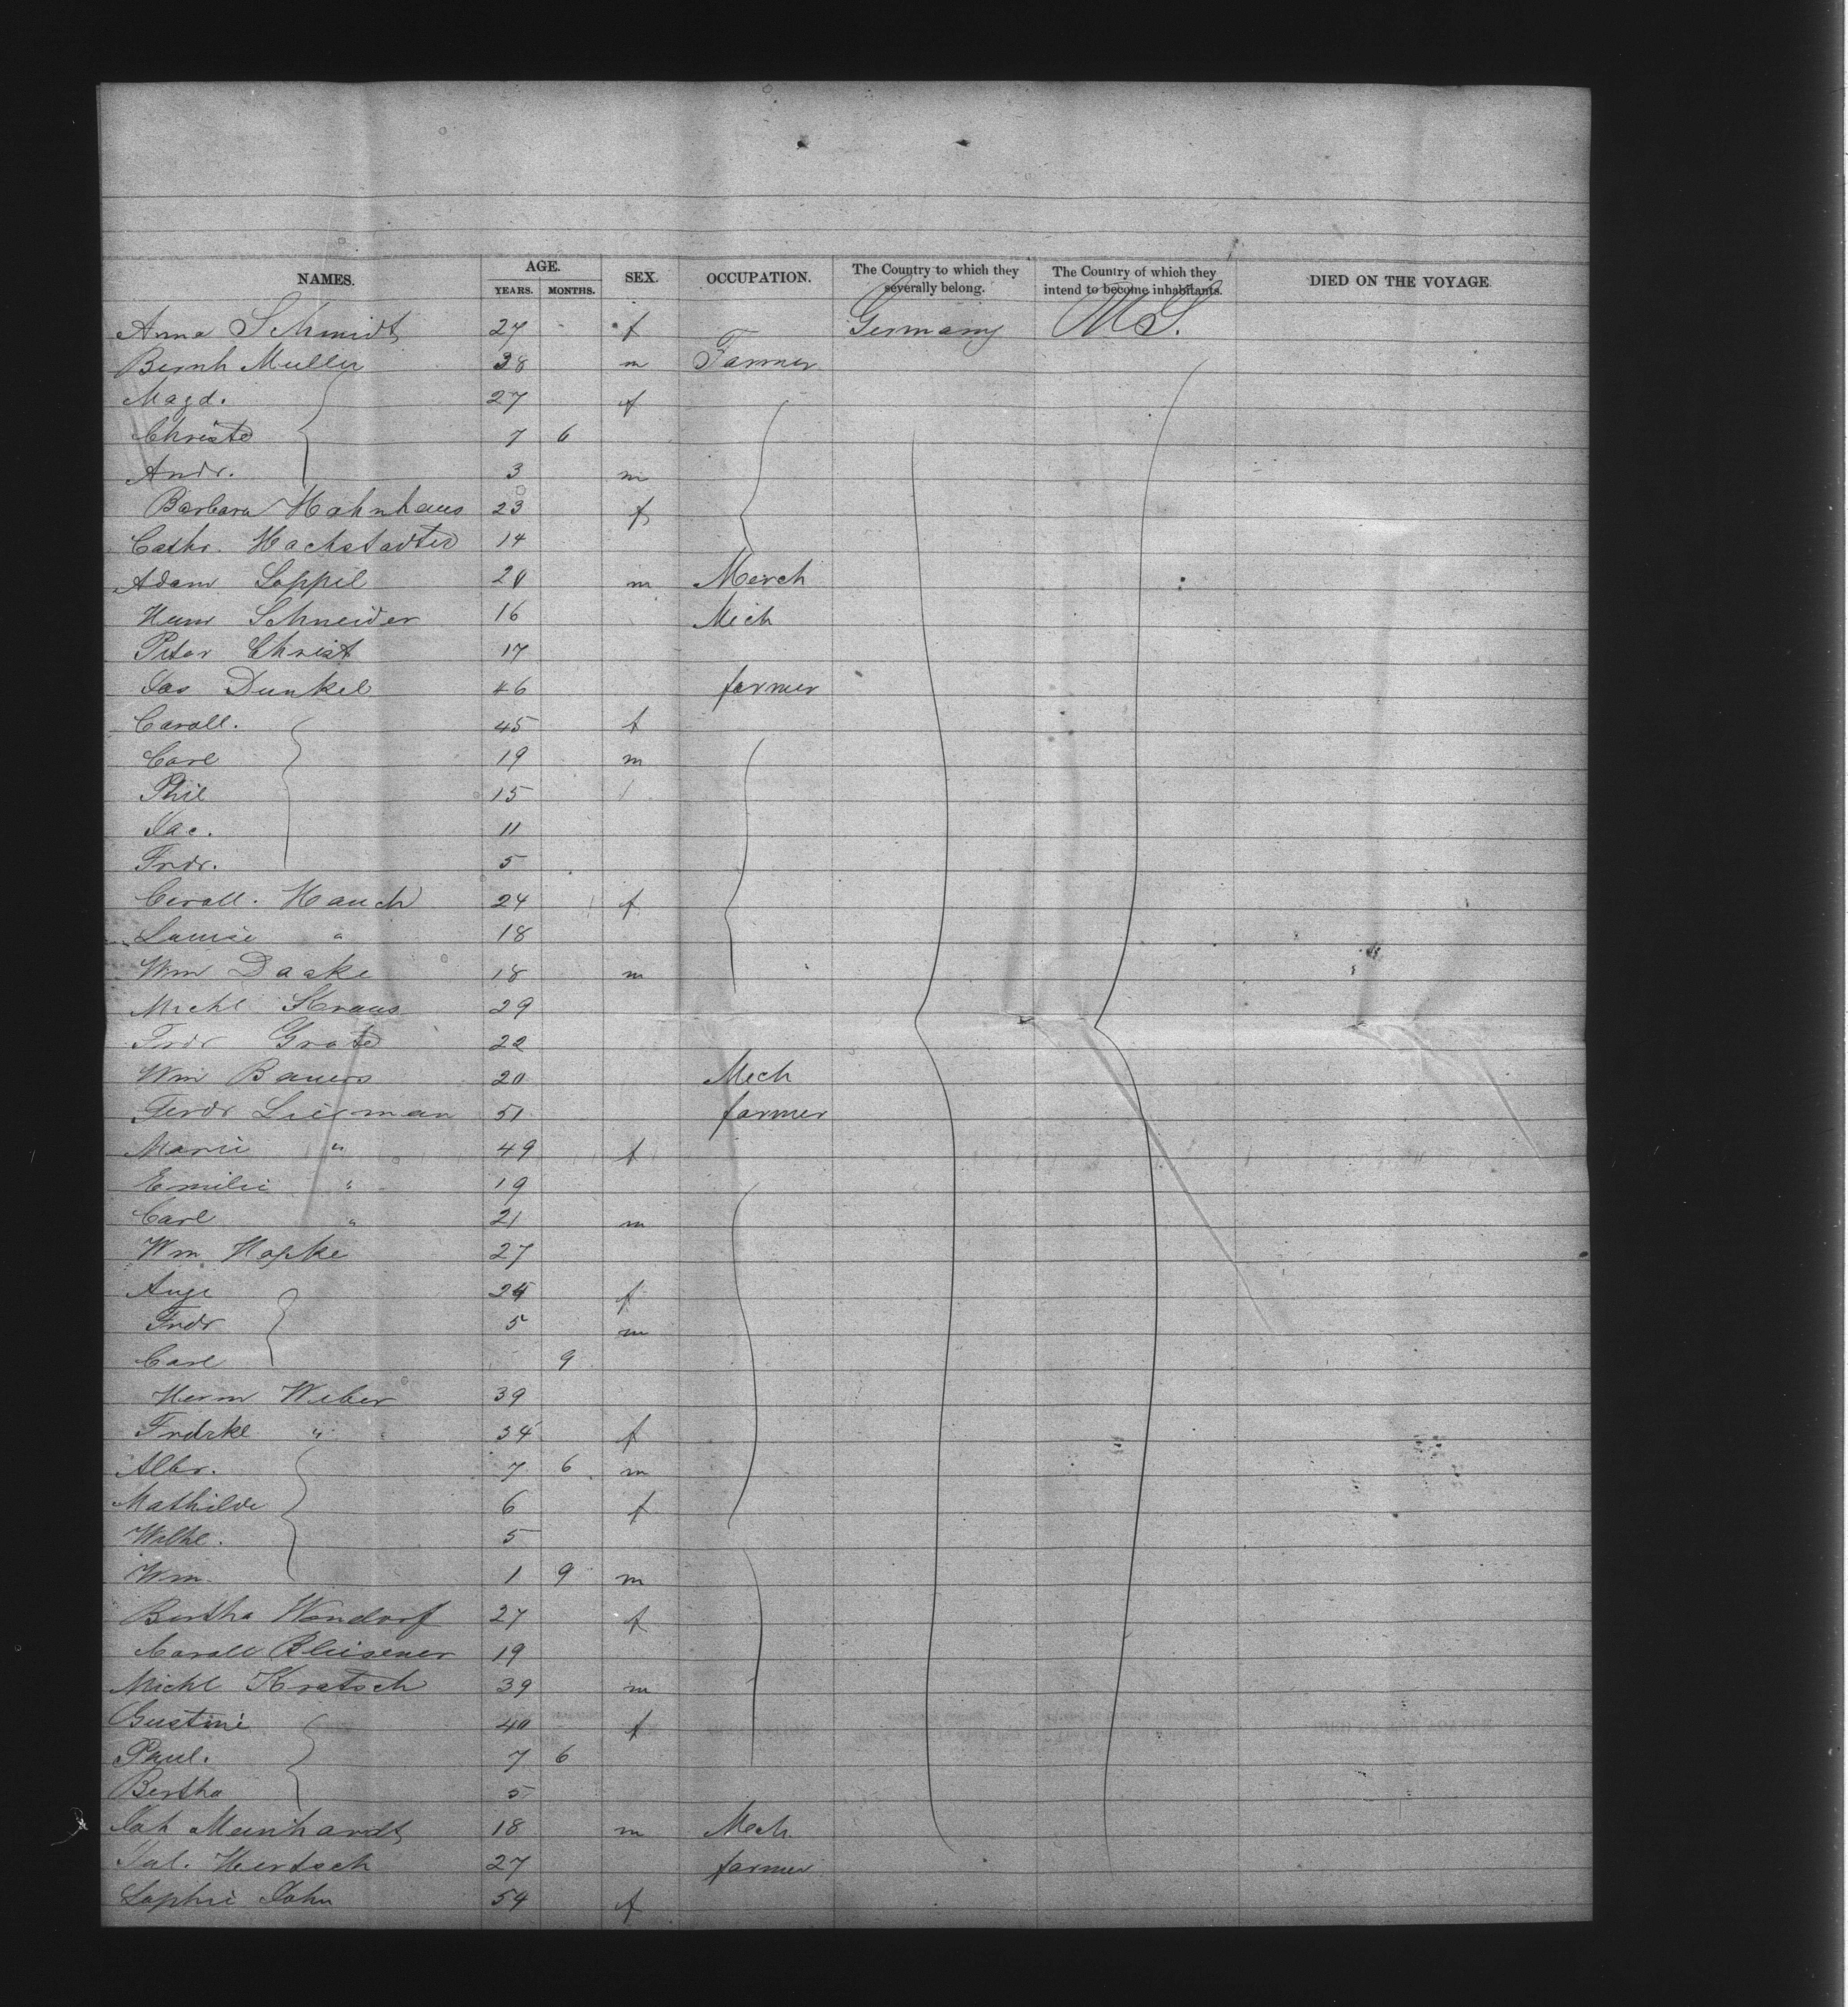 NAMES. AGE. YEARS. MONTHS. SEX. OCCUPATION. The Country to which they severally belong. The Country of which they intend to become inhabitants. DIED ON THE VOYAGE
Anna Schmidt 27 - f Germany U.S.
Bernh Muller 38 m Farmer
Magd. 27 f
Christe 7 6
Andr. 3 m
Barbara Hahnhaus 23 f
Cathr. Hachstadter 14
Adam Soppel 20 m Merch
Schneider 16 Mech
Peter Christ 17
Jas Dunkel 46 farmer
Caroll. 45 f
Carl 19 m
Phil 15
Jac. 11
Frdr. 5
Caroll. Hauch 24 f
Louise " 18
Wm Daake 18 m
Michl Kraus 29
Frdr Grote 22
Wm Bauers 20 Mech
Ferdr Lieman 51 farmer
Marie " 49 f
Emilie " 19
Carl " 21 m
Wm Hopke 27
24 f
Frdr 5 m
Carl 9
Herm Weber 39
Frdrke " 34 f
Albr. 7 6 m
Mathilde 6 f
Wilhl. 5
Wm. 1 9 m
Bertha Wondorf 27 f
Caroll Bleisener 19
Michl Kratsch 39 m
Gustine 40 f
Paul. 7 6
Bertha 5
Joh Meinhardt 18 m Mech.
Hertsch 27 farmer
Sophie John 54 f